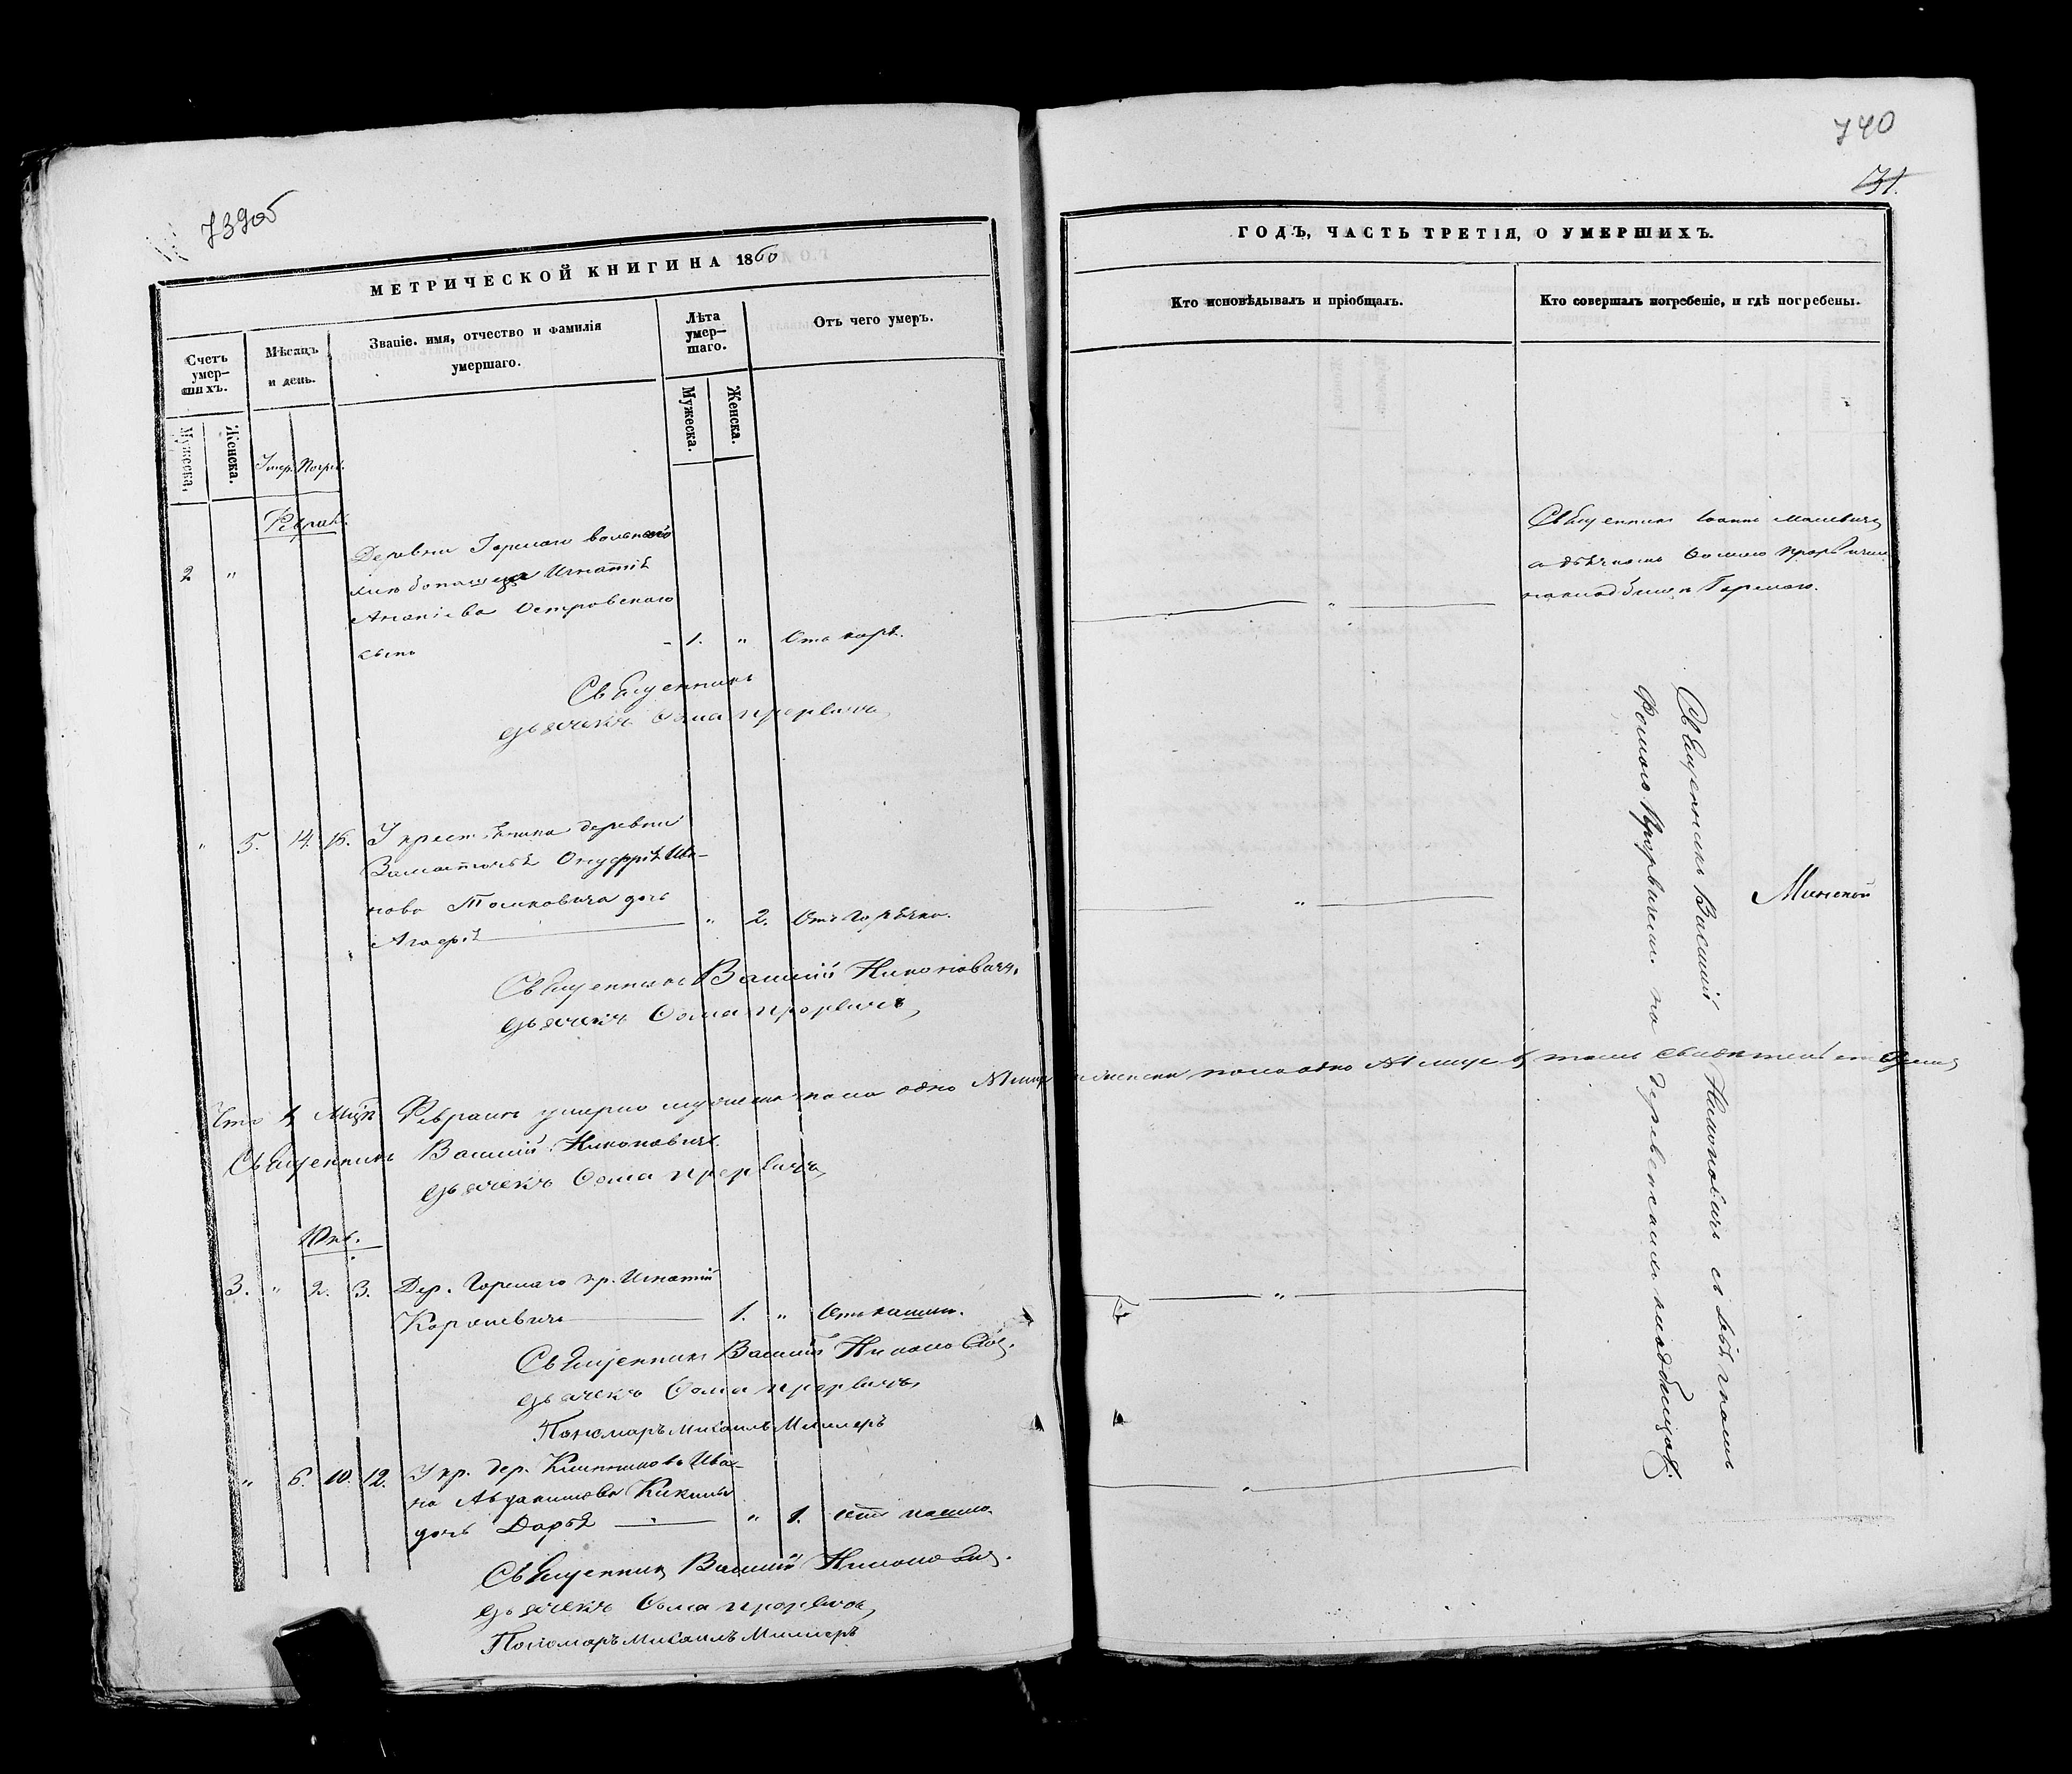 739об
МЕТРИЧЕСКОЙ КНИГИ НА 1860
Счетъ умер-шихъ.
Мѣсяцъ и день.
Званіе. имя, отчество и фамилія умершаго.
Лѣта умер-шаго.
Отъ чего умеръ.
Мужеска.
Женска.
Умер.
Погре.
Мужеска.
Женска.
Февраль.
2 " Деревни Горелаго вольнаго
хлѣбопашца Игнатія
Ананіева Островскаго
сынъ - 1. " Отъ корѣ.
Священникъ
дьячекъ Ѳома Прорвичъ
" 5. 14. 16. У крестьянина деревни
Замосточья Онуфрія Ива-
нова Толкловича дочь
Агафія " 2. Отъ горячки.
Священникъ Василій Никоновичъ.
дьячекъ Ѳома Прорвичъ
Что въ Мцѣ Февралѣ умерло мужеска пола одно лице и женска пола одно лице въ томъ свидѣтельствуемъ
Священникъ Василій Никоновичъ.
дьячекъ Ѳома Прорвичъ
3. " 2. 3. Дер. Горелаго кр. Игнатій
1. " Отъ кашли.
Священникъ Василій Никоновичъ.
дьячекъ Ѳома Прорвичъ
Пономарь Михаилъ Миллеръ
" 6. 10. 12. У кр. дер. Ива-
на
дочь Дарья " 1. отъ кашли.
Священникъ Василій Никоновичъ.
дьячекъ Ѳома Прорвичъ
Пономарь Михаилъ Миллеръ
740
31.
ГОДЪ, ЧАСТЬ ТРЕТІЯ, О УМЕРШИХЪ.
Кто исповѣдывалъ и пріобщалъ.
Кто совершалъ погребеніе, и гдѣ погребены.
Священникъ Іоаннъ
съ дьячкомъ Ѳомою Прорвичемъ
на кладбищѣ Горелаго.
Священникъ Василій Никоновичъ съ дьячкомъ
Ѳомою Прорвичемъ на деревенскихъ кладбищахъ.